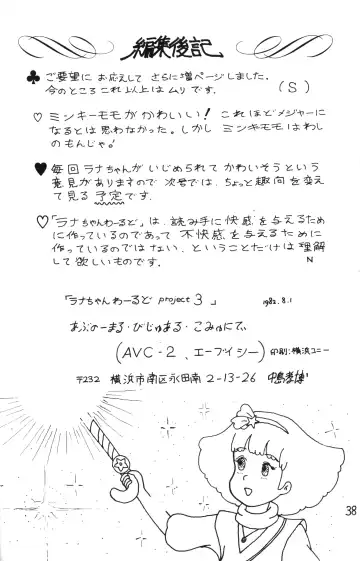 編集後記
♣ ご要望に お応えして さらに増ページしました。
今のところ これ以上は ムリ です.
(S)
♡ ミンキーモモが かわいい! これほどメジャーに
なるとは 思わなかった。しかし ミンキーモモは わし
の もんじゃ!
♥ 毎回 ラナちゃんが いじめられて かわいそう という
意見が ありますので 次号では、ちょっと 趣向を変え
て見る 予定です.
♡「ラナちゃんわーるど」は、読み手に 快感を与えるため
に作っているのであって 不快感を 与えるために
作っているのでは ない、ということだけは 理解
して 欲しいものです.
N
「ラナちゃんわーるど project 3 」 1982.8.1
あぶのーまる・びじゅある・こみゅにてぃ
(AVC-2、エーブイシー) 印刷:横浜ユニー
〒232 横浜市南区永田南 2-13-26
38